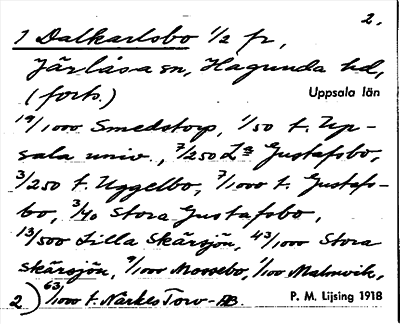 2.
1 Dalkarlsbo 1/2 fr,
Järlåsa sn, Hagunda hd,
(forts.) Uppsala län
19/1000 Smedstorp, 1/50 t. Up-
sala univ., 7/250 La Gustafsbo,
3/250 t. Uggelbo, 7/1000 t. Gustafs-
bo, 3/40 Stora Gustafsbo,
13/500 Lilla Skärsjön, 43/1000 Stora
Skärsjön, 9/1000 Mossebo, 1/100 Malmvik,
2) 63/1000 t. Närkes Torv-AB. P. M. Lijsing 1918